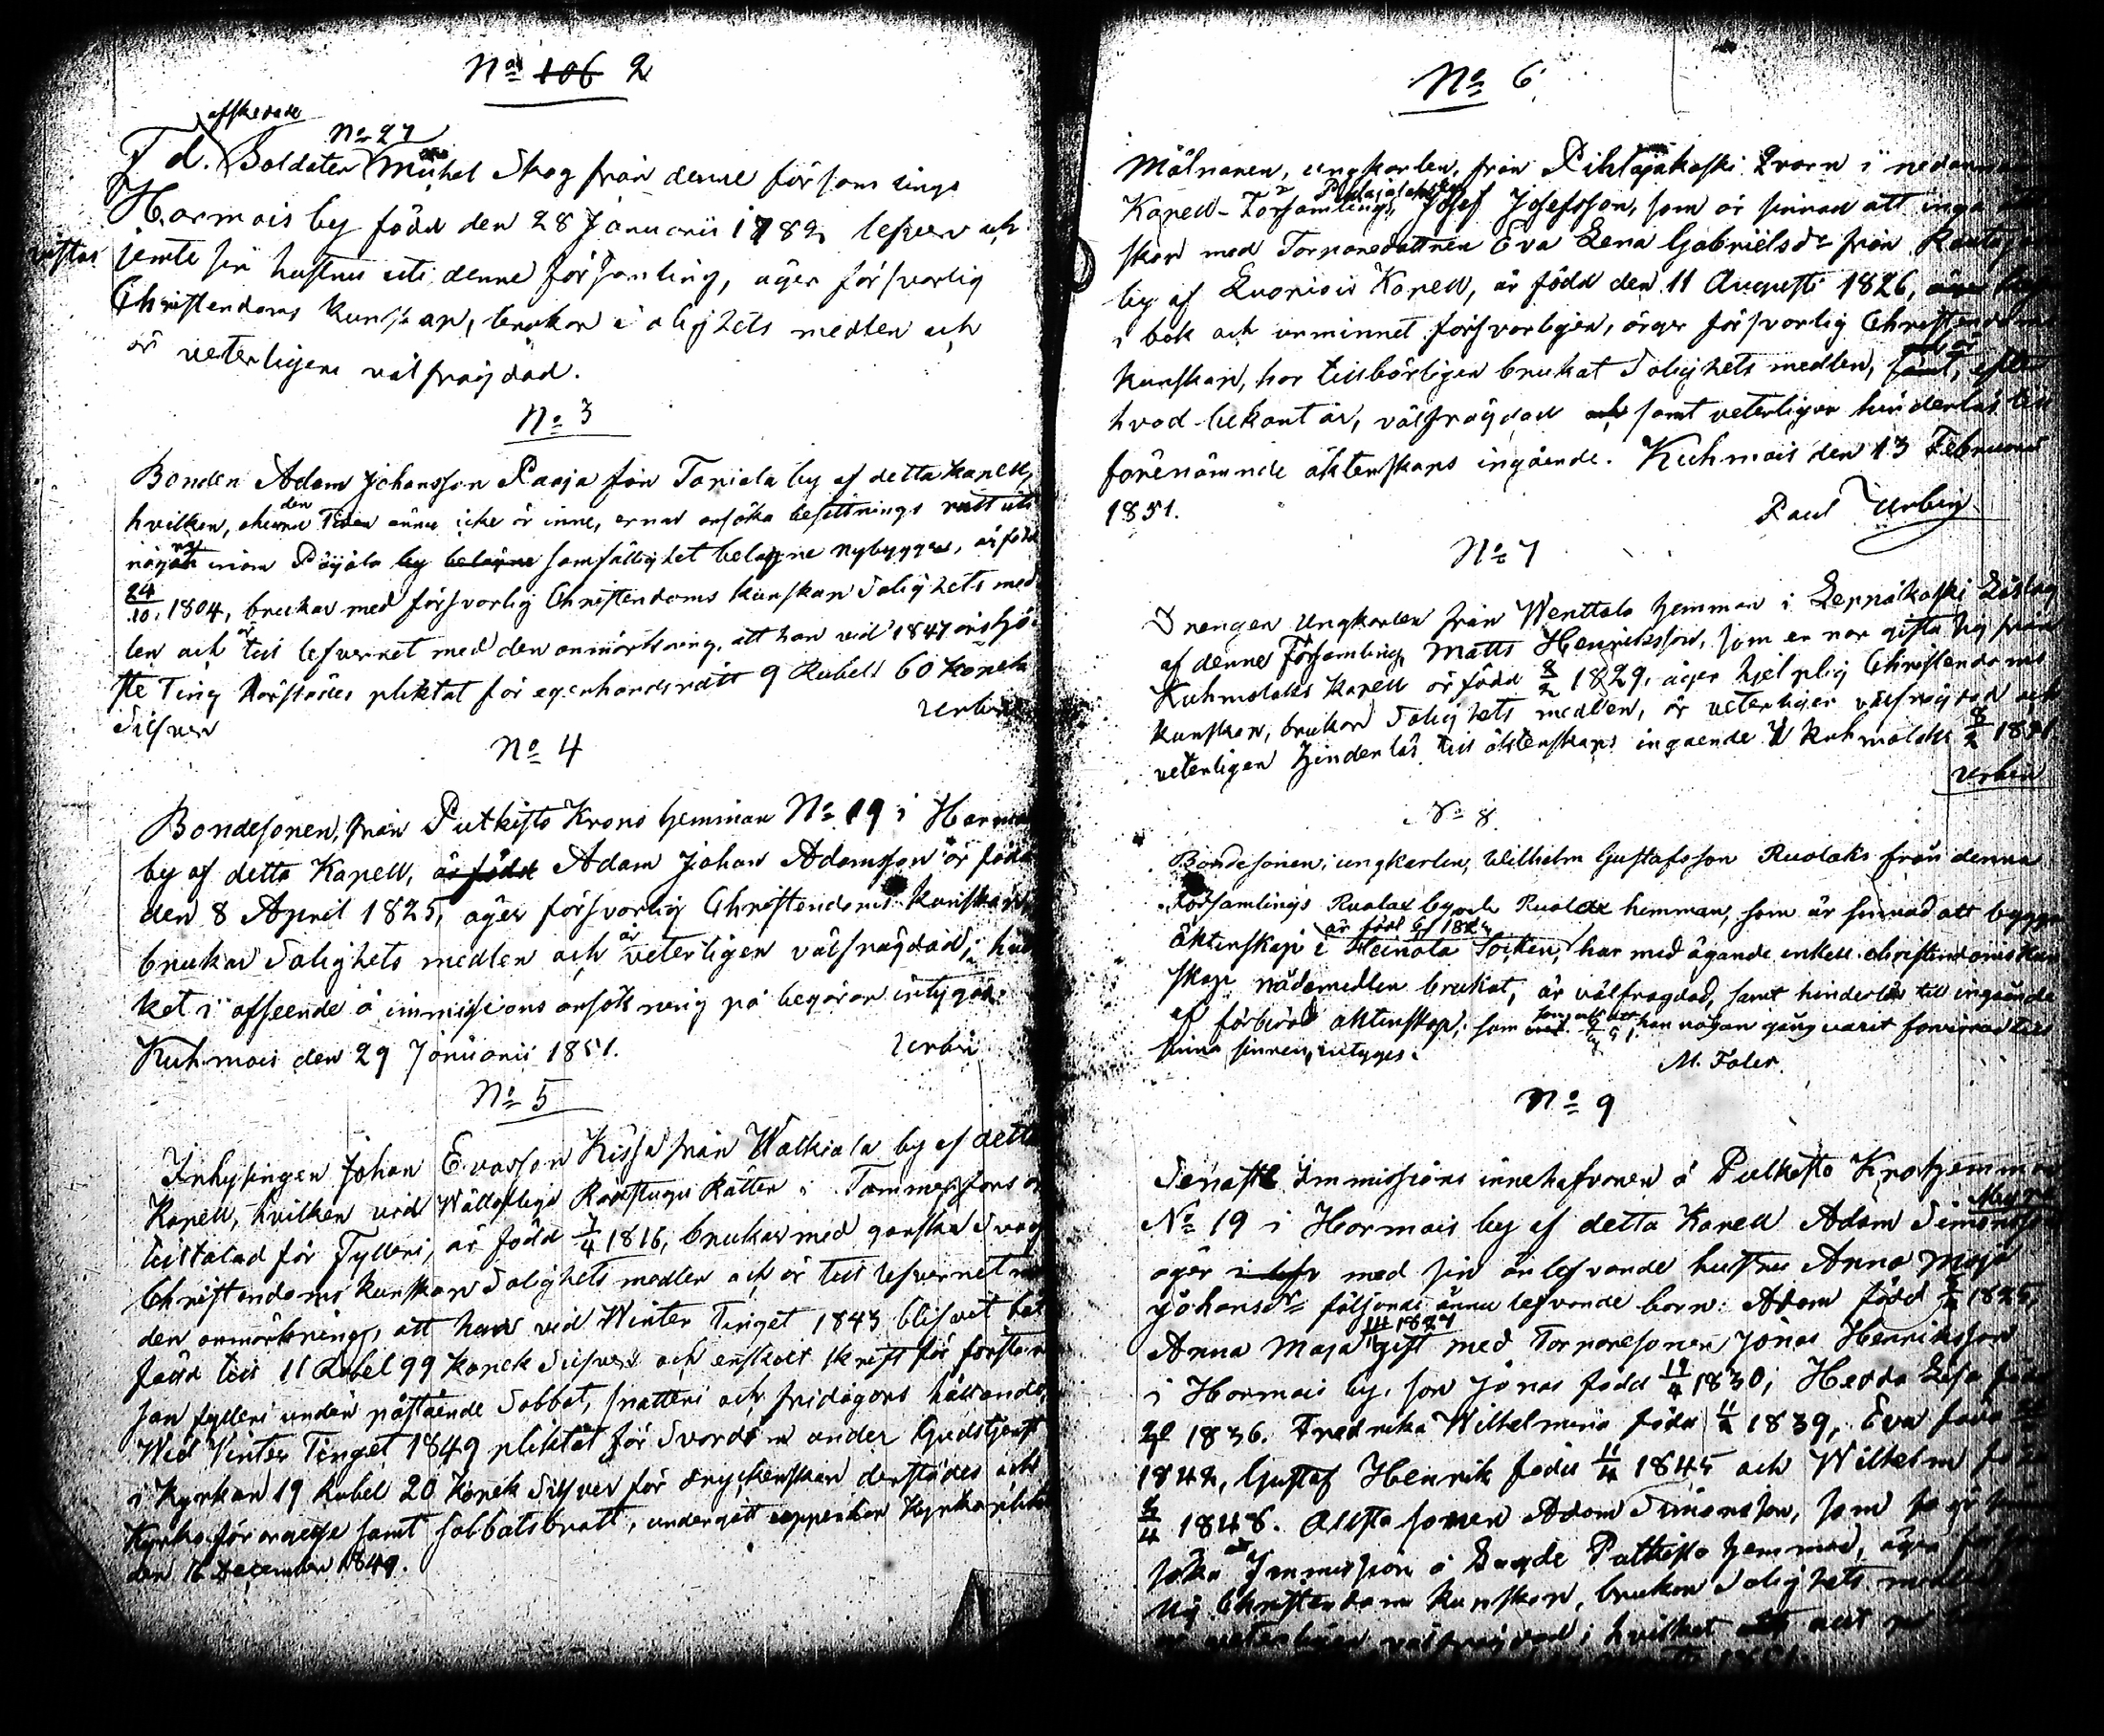 No 106 2
afskedade
No 27
F d. Soldaten Michel Skog från denne församlings
Harmois by född den 28 Januarii 1782, lefver och
vistas jemte sin hustru uti denne församling, äger försvarlig
Christendoms kunskap, brukar salighets medlen och
är veterligen välfrägdad.
No 3
Bonden Adam Johansson Paaja från Taniala by af detta Kapell,
hvilken, ehuru den Tiden ännu icke är inne, ernar ansöka besittnings rätt uti
någon inom Päijälä by belägne samfällighet belagne nybygge, är född
24/10 1804, brukar med försvarlig Christendoms kunskap Salighets med
len och är till lefvernet med den anmärkning, att han vid 1847 års Hö
ste Ting härstädes pliktat för egenhandsrätt 9 Rubel 60 Kopek
Silfver
Urbin
No 4
Bondesonen, från Putkisto Krono hemman No 19 i Harmois
by af detta Kapell, är född Adam Johan Adamsson är född
den 8 April 1825, äger försvarlig Christendoms kunskap,
brukar Salighets medlen och är veterligen välfrägdad; hvil
ket i afseende å immissions ansökning på begäran intygas.
Kuhmois den 29 Januarii 1851. Urbin
No 5
Inhysingen Johan Evasson Kissa från Walkiala by af detta
Kapell, hvilken vid Wällofliga Rådstugu Rätten i Tammerfors är
tilltalad för Fylleri, är född 7/4 1816, brukar med ganska svag
Christendoms kunskap Salighets medlen och är till lefvernet med
den anmärkning, att han vid Winter Tinget 1843 blifvit
fälld till 11 Rubel 99 Kopek Silfver och enskilt skrift för första
gan fylleri under påstående Sabbat, snatteri och fridagars hållande,
Wid Vinter Tinget 1849 pliktat för Svordom under Gudstjenst
i Kyrkan 19 Rubel 20 Kopek Silfver för dryckenskap derstädes och
Kyrko förargelse samt sabbatsbrott, undergått uppenbar Kyrkoplikt
den 16 December 1849.
No 6
Mölnaren, ungkarlen, från Pihlajakoski Qvarn i nedannämnde
Kapell-Församling, Josef Josefsson, som är sinnad att ingå äkten
skap med Torparedottren Eva Lena Gabrielsdr från
by af Luopiois Kapell, är född den 11 Augusti 1826,
i bok och urminnet försvarligen, äger försvarlig Christendoms
kunskap, har tillbörligen brukat Salighets medlen, samt, efter
hvad bekant är, välfrägdad och samt veterligen hinderlös till
förenämnde äktenskaps ingående. Kuhmois den 13 Februarii
1851. Paul Urbin
No 7
Drengen Ungkarlen från Wenttala hemman i Leppäkoski
af denne Församling Matts Henriksson, som ernar gifta sig från
Kuhmalaks Kapell är född 8/2 1829, äger hjelplig Christendoms
kunskap, brukar Salighets medlen, är veterligen välfrägdad och
veterligen hinderlös till äktenskaps ingående i Kuhmalaks 1851
Urbin
No 8
Bondesonen, ungkarlen, Wilhelm Gustafsson Ruolaks från denna
Församlings Ruolax by och Ruolax hemman, som är sinnad att bygga
äktenskap i Heinola Socken, har med ägande enkell christendoms kun
skap nådemedlen brukat, är välfrägdad, samt hinderlös till ingående
af förberörd äktenskap; som han någon gång varit förvirrad till
sina sinnen, intygas.
M. Faler.
No 9
Senaste Immissions innehafvaren å Putkisto Krohemman
No 19 i Harmois by af detta Kapell Adam Simonsson
äger med sin än lefvande hustru Anna Maja
Johansdr följande ännu lefvande barn: Adam född 1825,
Anna Maja gift med Torparesonen Jonas Henriksson
i Harmois by, son Jonas född 19/4 1830; Hedda Lisa född
1836. Fredrika Wilhelmina född 1839, Eva född
1842, Gustaf Henrik född 11/4 1845 och Wilhelm född
5/4 1848. Äldsta sonen Adam Simonsson, som
söka Immission å Sagde Putkisto hemman, äger försvar
lig Christendoms kunskap, brukar Salighets medlen
är veterligen välfrägdad; hvilket